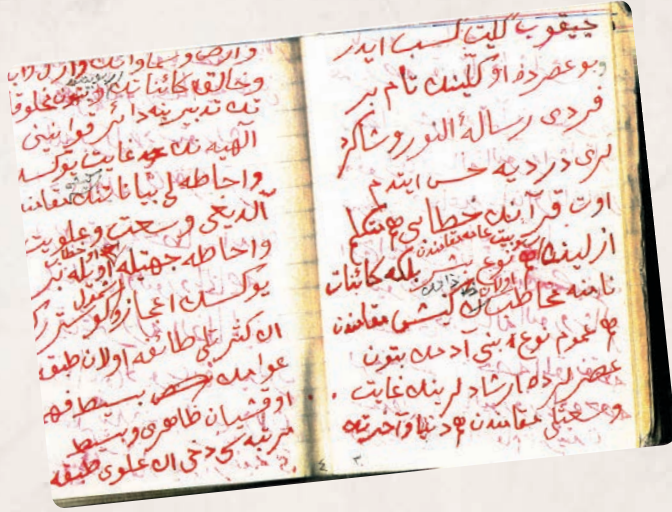 چیقوب كلیت كسب ایدر
وبو عصرده او كلینك تام بر
فردی رسالۀ النور و شاكرد
لری در دیه حس ایتدم
اوت قرآنك خطابی هم متكلم
ازلینك ربوبیت عامه مقامندن هم نوع بشر بلكه كائنات
نامنه مخاطب اولان ذاتك كنیش مقامندن
هم عموم نوع بنی آدمك بتون
عصرلرده ارشادلرینك غایت
وسعتلی مقامندن هم دنیا و آخرتك
٣
وارضك وسماواتك وازل
وخالق كائناتك وبتون مخلوقا
تك تدبیرینه دائر قوانین
الهیه نك غایت یوكسك
واحاطه لی بیاناتنك كنیش مقامندن
آلدیغی وسعت وعلویت
واحاطه جهتیله او خطاب اویله بر
یوكسك اعجاز وشمول كوستریر
اڭ كثرتلی طائفه اولان طبقه
عوامك بسیط فهم
اوقشایان ظاهری وبسیط
مرتبه سی دخی اڭ علوی طبقه
٤